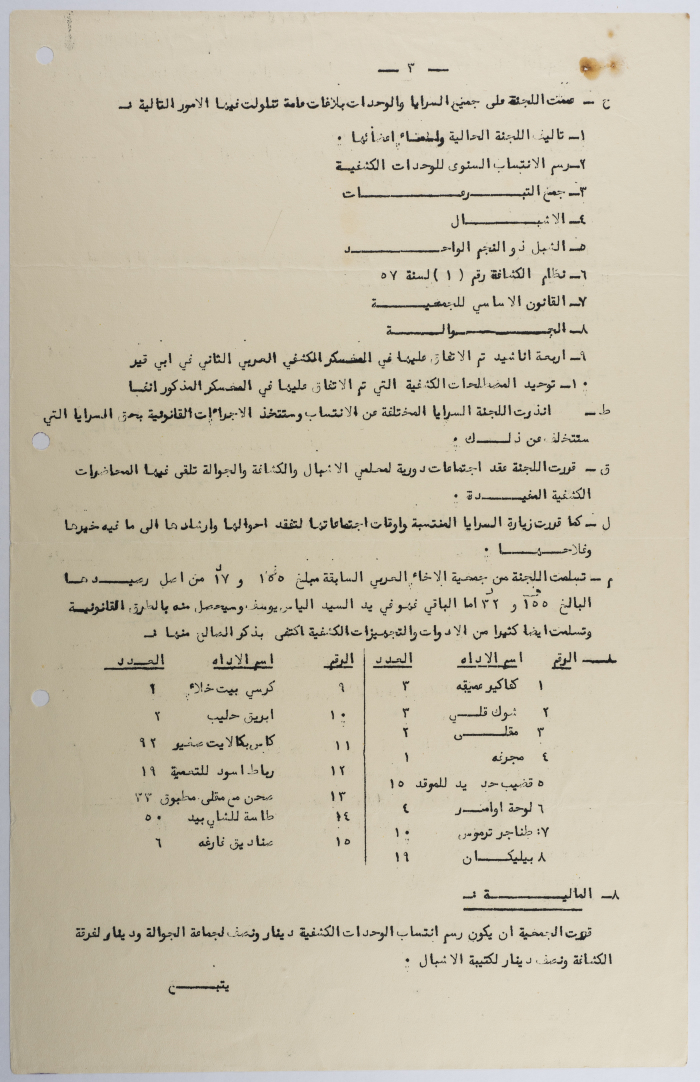 — ٣ —
ح ـ عممت اللجنة على جميع السرايا والوحدات بلاغات عامة تناولت فيها الامور التالية :ـ
١ـ تاليف اللجنة الحالية واسماء اعضائها .
٢ـ رسم الانتساب السنوى للوحدات الكشفية
٣ـ جمع التبـــرعـــات
٤ـ الاشبـــال
٥ـ الشبل ذو النجم الواحـــد
٦ـ نظام الكشافة رقم (١) لسنة ٥٧
٧ـ القانون الاساسي للجمعيـــة
٨ـ الجـــوالـــة
٩ـ اربعة اناشيد تم الاتفاق عليها في المعسكر الكشفي العربي الثاني في ابي قير
١٠ـ توحيد المصطلحات الكشفية التي تم الاتفاق عليها في المعسكر المذكور انفا
ط ـ انذرت اللجنة السرايا المختلفة عن الانتساب وستتخذ الاجراءات القانونية بحق السرايا التي
ستتخلف عن ذلـــك .
ق ـ قررت اللجنة عقد اجتماعات دورية لمعلمي الاشبال والكشافة والجوالة تلقى فيها المحاضرات
الكشفية المفيـــدة .
ل ـ كما قررت زيارة السرايا المنتسبة واوقات اجتماعاتها لتفقد احوالها وارشادها الى ما فيه خيرها
وفلاحـــهـــا .
م ـ تسلمت اللجنة من جمعية الاخاء العربي السابقة مبلغ ١٥٥ و ١٧ من اصل رصيـــدهـــا
البالغ ١٥٥ و ٣٢ اما الباقي فهو في يد السيد الياس يوسف وسيحصل منه بالطرق القانونيـة
وتسلمت ايضا كثيرا من الادوات والتجهيزات الكشفية اكتفى بذكر الصالح منها :ـ
الرقم اسم الاداه العدد الرقم اسم الاداه العدد
١ كفاكير عميقه ٣ ٩ كرسي بيت خلاء ٢
٢ شوك قلـــي ٣ ١٠ ابريق حليب ٢
٣ مقلـــى ٢ ١١ كاس بكالايت صغير ٩٢
٤ مجرفه ١ ١٢ رباط اسود للتعمية ١٩
٥ قضيب حديد للموقد ١٥ ١٣ صحن مع مقلى مطبوق ٣٣
٦ لوحة اوامـــر ٤ ١٤ طاسة للشاي بيد ٥٠
٧ طناجر ترموس ١٠ ١٥ صناديق فارغه ٦
٨ بيليكـــان ١٩
٨ـ الماليـــة :ـ
قررت الجمعية ان يكون رسم انتساب الوحدات الكشفية دينار ونصف لجماعة الجوالة ودينار لفرقة
الكشافة ونصف دينار لكتيبة الاشبال .
يتبـــع